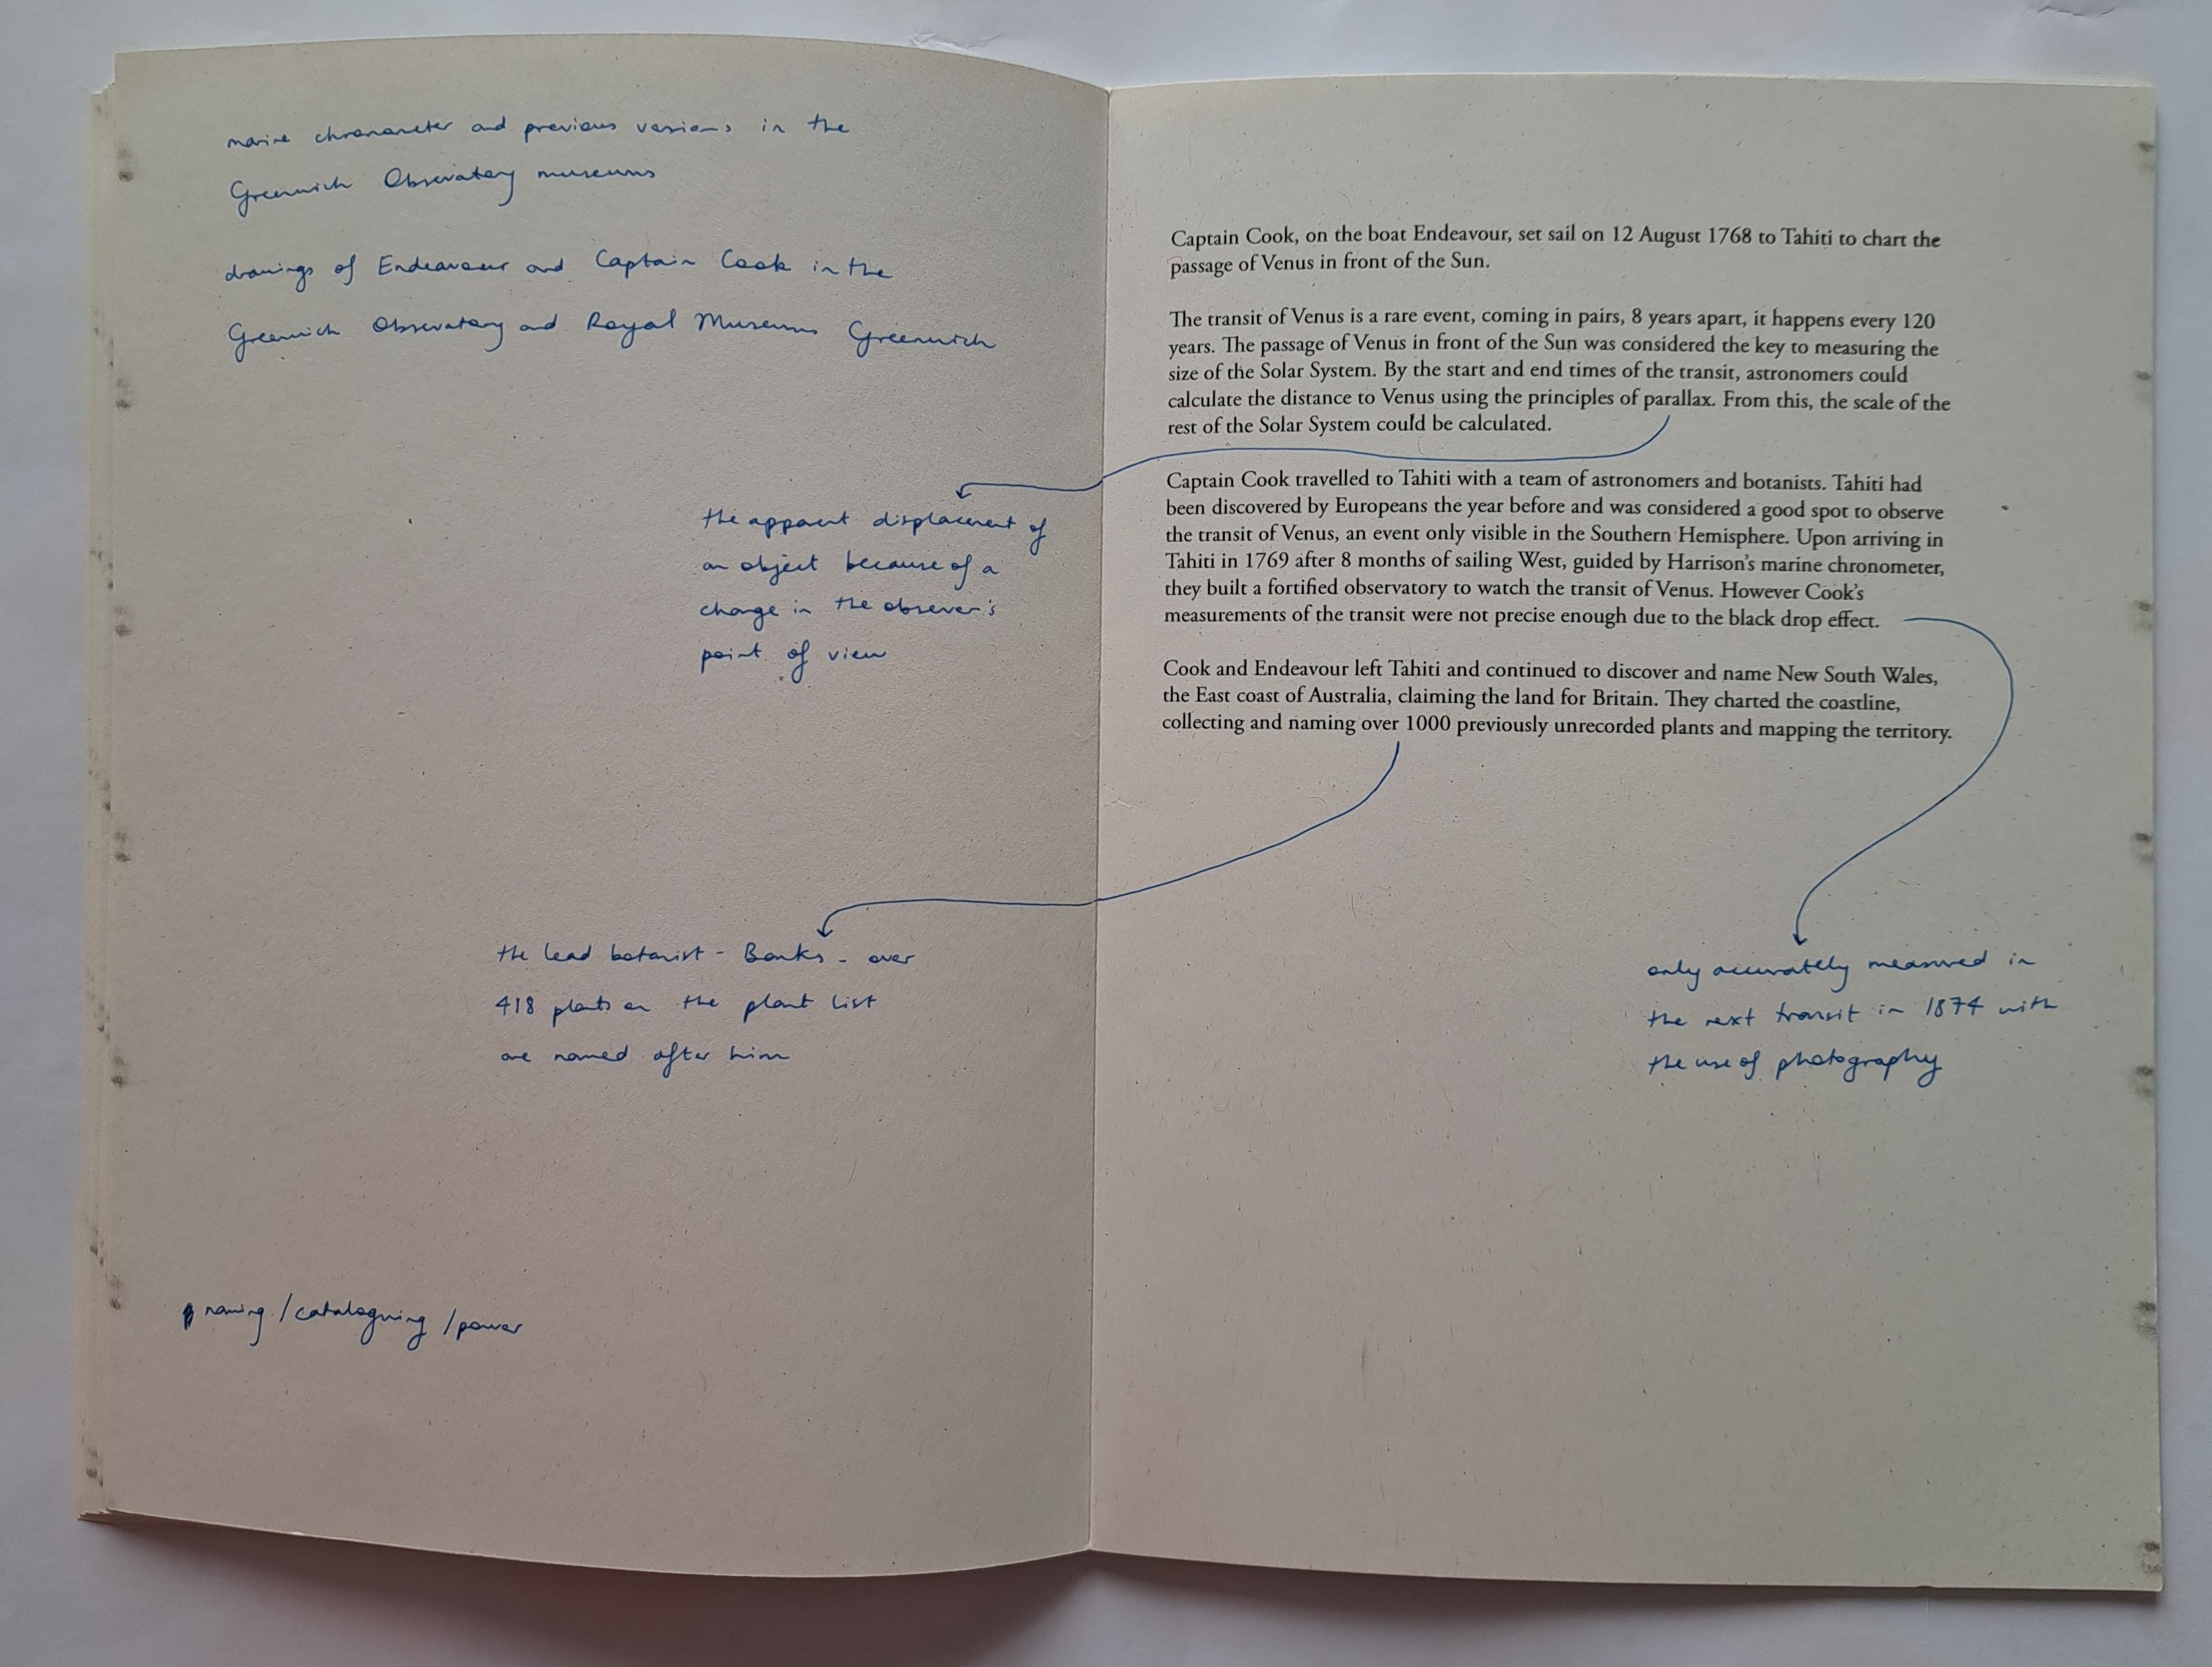 marine chronometer and previous versions in the
Greenwich Observatory museums
drawings of Endeavour and Captain Cook in the
Greenwich Observatory and Royal Museums Greenwich
the apparent displacement of
an object because of a
change in the observer's
point of view
the lead botanist - Banks - over
418 plants on the plant list
are named after him
naming / cataloguing / power
Captain Cook, on the boat Endeavour, set sail on 12 August 1768 to Tahiti to chart the
passage of Venus in front of the Sun.
The transit of Venus is a rare event, coming in pairs, 8 years apart, it happens every 120
years. The passage of Venus in front of the Sun was considered the key to measuring the
size of the Solar System. By the start and end times of the transit, astronomers could
calculate the distance to Venus using the principles of parallax. From this, the scale of the
rest of the Solar System could be calculated.
Captain Cook travelled to Tahiti with a team of astronomers and botanists. Tahiti had
been discovered by Europeans the year before and was considered a good spot to observe
the transit of Venus, an event only visible in the Southern Hemisphere. Upon arriving in
Tahiti in 1769 after 8 months of sailing West, guided by Harrison's marine chronometer,
they built a fortified observatory to watch the transit of Venus. However Cook's
measurements of the transit were not precise enough due to the black drop effect.
Cook and Endeavour left Tahiti and continued to discover and name New South Wales,
the East coast of Australia, claiming the land for Britain. They charted the coastline,
collecting and naming over 1000 previously unrecorded plants and mapping the territory.
only accurately measured in
the next transit in 1874 with
the use of photography